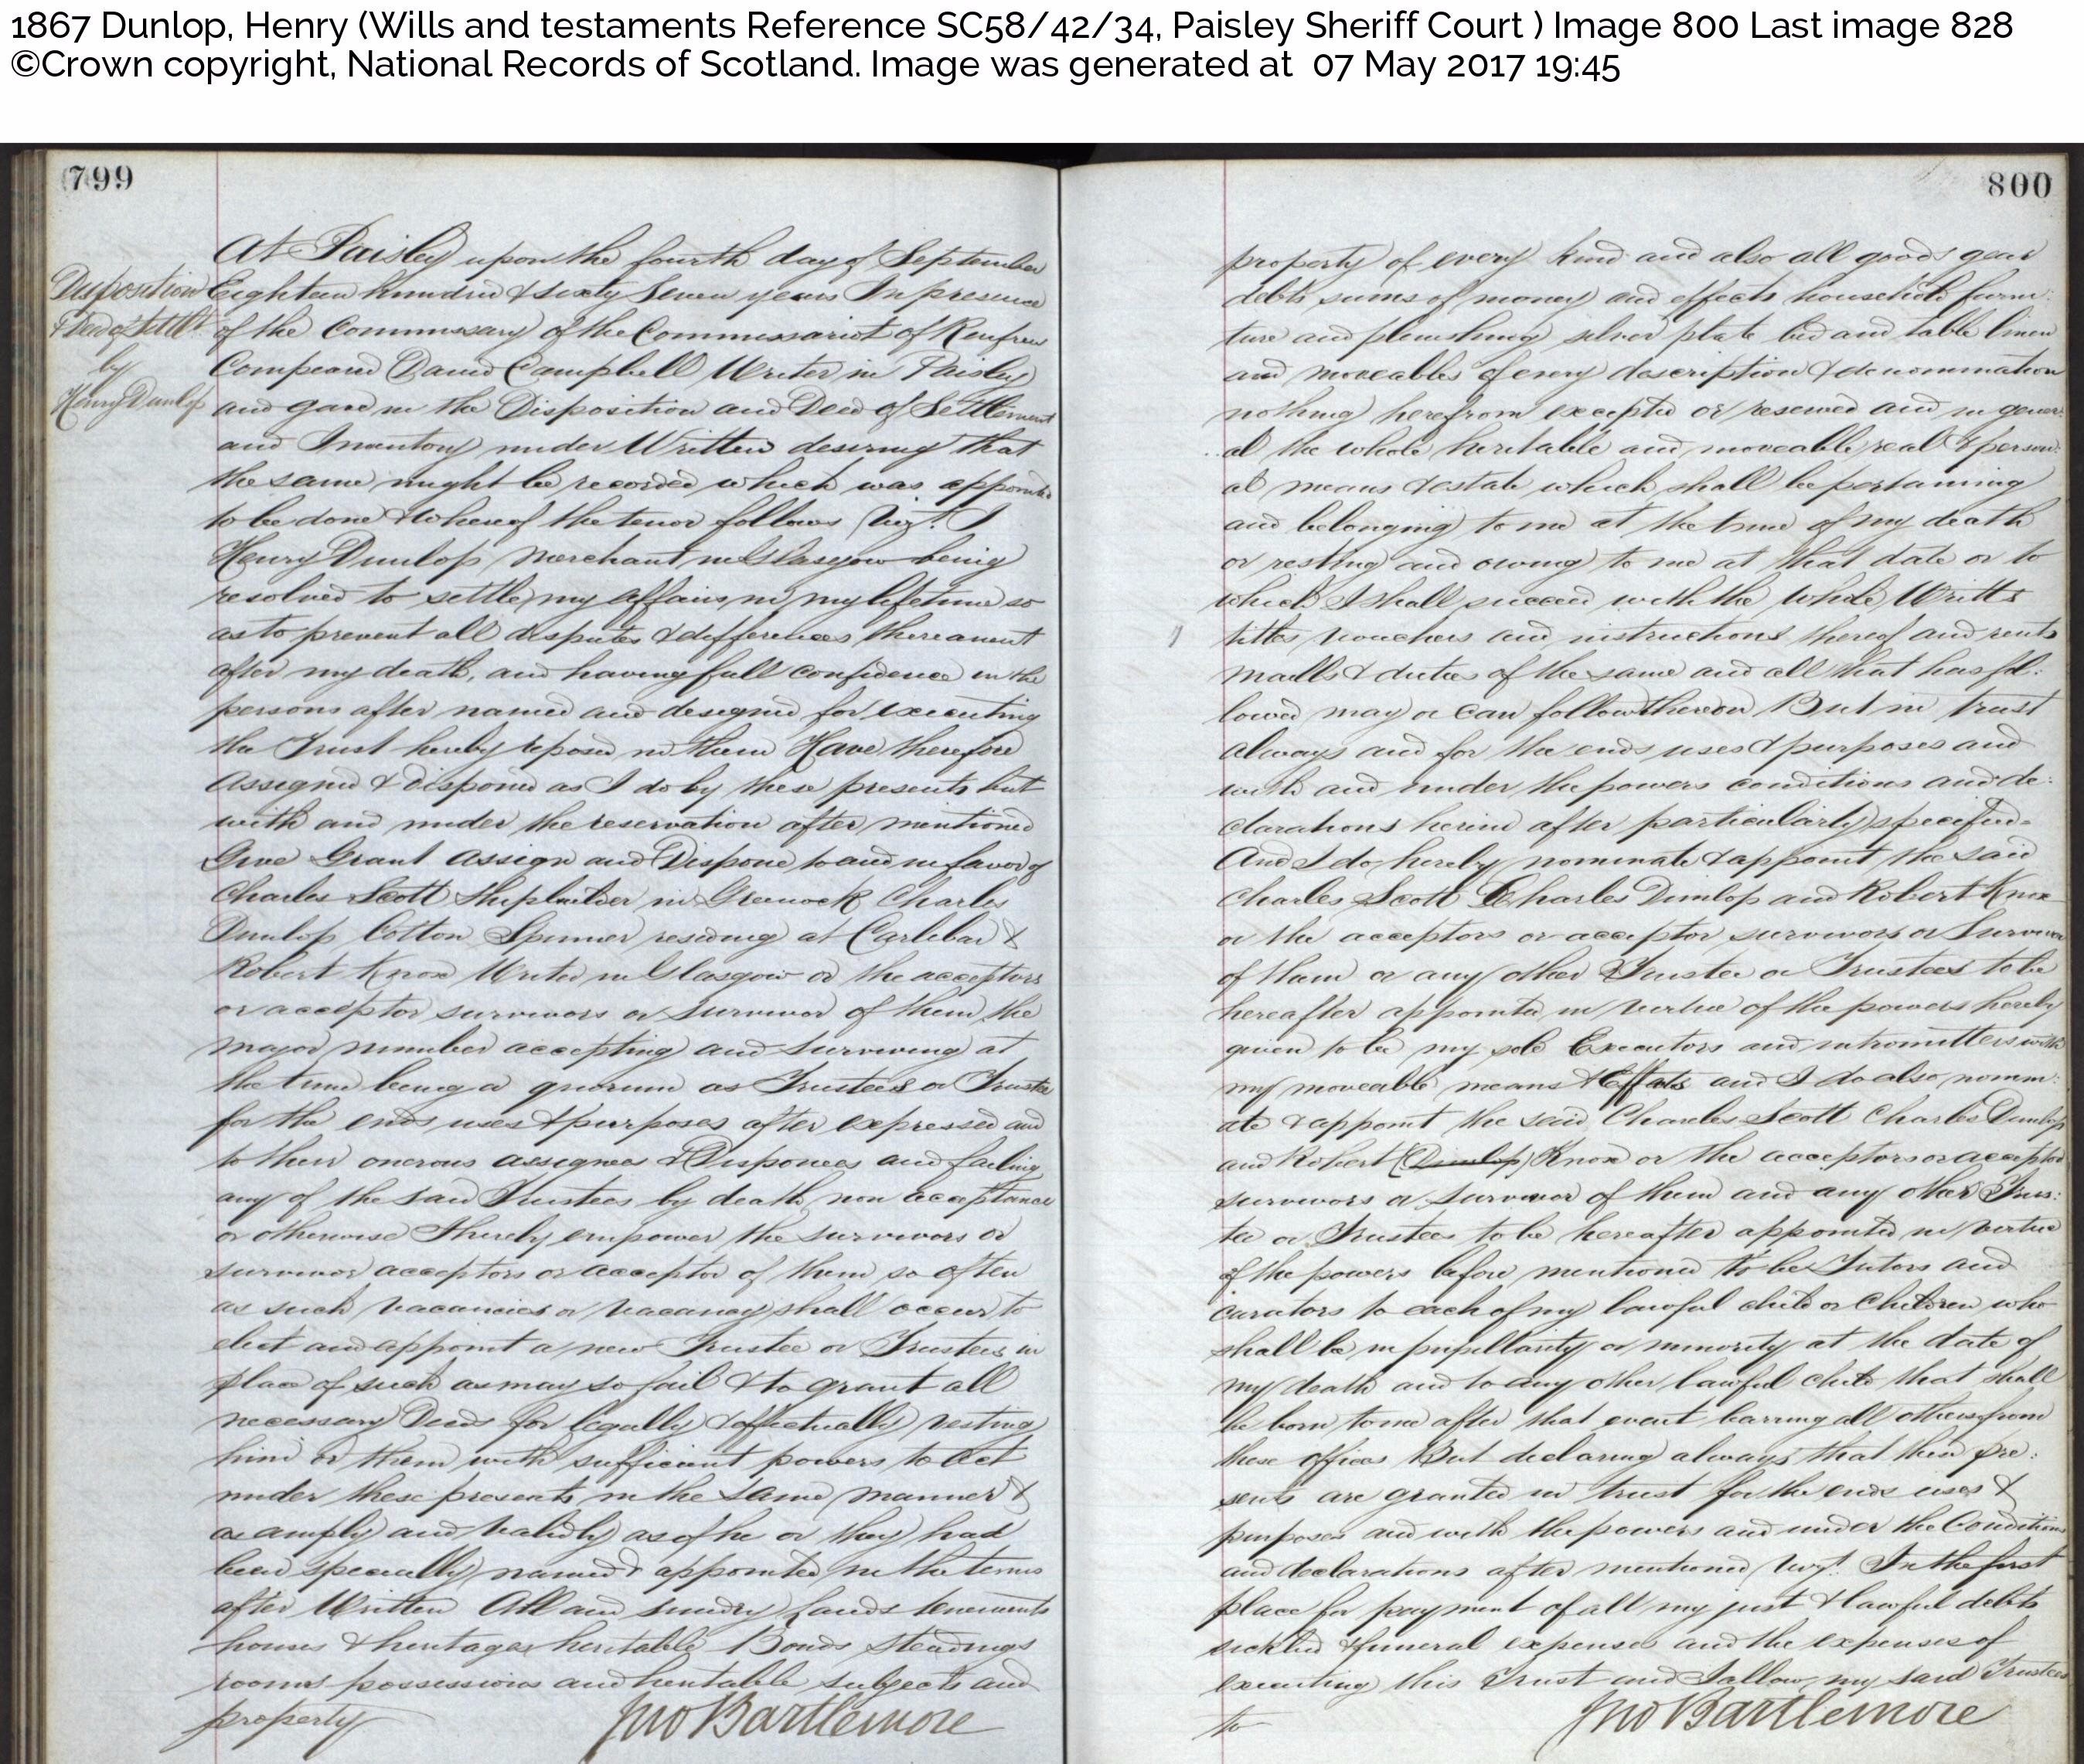 1867 Dunlop, Henry (Wills and testaments Reference SC58/42/34, Paisley Sheriff Court ) Image 800 Last image 828
©Crown copyright, National Records of Scotland. Image was generated at 07 May 2017 19:45
799
Disposition
& Deed of Settlt.
by
Henry Dunlop
At Paisley upon the fourth day of September
Eighteen hundred & sixty Seven years In presence
of the Commissary of the Commissariot of Renfrew
Compeared David Campbell Writer in Paisley
and gave in the Disposition and Deed of Settlement
and Inventory under Written desiring that
the same might be recorded which was appointed
to be done & whereof the tenor follows Vizt. I
Henry Dunlop Merchant in Glasgow being
resolved to settle my affairs in my lifetime so
as to prevent all disputes & differences thereanent
after my death, and having full confidence in the
persons after named and designed for executing
the Trust hereby reposed in them Have therefore
Assigned & Disponed as I do by these presents but
with and under the reservation after mentioned
Give Grant Assign and Dispone to and in favor of
Charles Scott Shipbuilder in Greenock Charles
Dunlop Cotton Spinner residing at Carlibar &
Robert Knox Writer in Glasgow or the acceptors
or acceptor survivors or survivor of them the
major number accepting and surviving at
the time being a quorum as Trustees or Trustee
for the ends uses & purposes after expressed and
to their onerous assignees & Disponees and failing
any of the said Trustees by death non acceptance
or otherwise I hereby empower the survivors or
survivor acceptors or acceptor of them so often
as such vacancies or vacancy shall occur to
elect and appoint a new Trustee or Trustees in
place of such as may so fail & to grant all
necessary Deeds for legally & effectually vesting
him or them with sufficient powers to Act
under these presents in the same manner &
as amply and validly as if he or they had
been specially named & appointed in the terms
after Written All and sundry lands tenements
houses & heritages heritable Bonds Steadings
rooms possessions and heritable subjects and
property
Jno Bartlemore
800
property of every kind and also all goods gear
debts sums of money and effects household furni:
ture and plenishing silver plate bed and table linen
and moveables of every description & denomination
nothing herefrom excepted or reserved and in gener:
al the whole heritable and moveable real & person:
al means & estate which shall be pertaining
and belonging to me at the time of my death
or resting and owing to me at that date or to
which I shall succeed with the whole Writts
titles vouchers and instructions thereof and rents
maills & duties of the same and all that has fol:
lowed may or can follow thereon But in trust
always and for the ends uses & purposes and
with and under the powers conditions and de:
clarations herein after particularly specified-
And I do hereby nominate & appoint the said
Charles Scott Charles Dunlop and Robert Knox
or the acceptors or acceptor survivors or Survivor
of them or any other Trustee or Trustees to be
hereafter appointed in virtue of the powers hereby
given to be my sole Executors and intromitters with
my moveable means & Effects and I do also nomin:
ate & appoint the said Charles Scott Charles Dunlop
and Robert (Dunlop) Knox or the acceptors or acceptor
survivors or survivor of them and any other Trus:
tee or Trustees to be hereafter appointed in virtue
of the powers before mentioned to be Tutors and
curators to each of my lawful child or children who
shall be in pupillarity or minority at the date of
my death and to any other lawful child that shall
be born to me after that event barring all others from
these offices But declaring always that these pre:
sents are granted in trust for the ends uses &
purposes and with the powers and under the Conditions
and declarations after mentioned Vizt. In the first
place for payment of all my just & lawful debts
sickbed & funeral expenses and the expenses of
executing this Trust and I allow my said Trustees
to
Jno Bartlemore